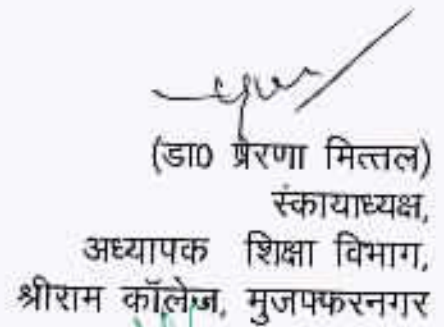 (डा0 प्रेरणा मित्तल)
स्कायाध्यक्ष,
अध्यापक शिक्षा विभाग,
श्रीराम कॉलेज, मुजफ्फरनगर